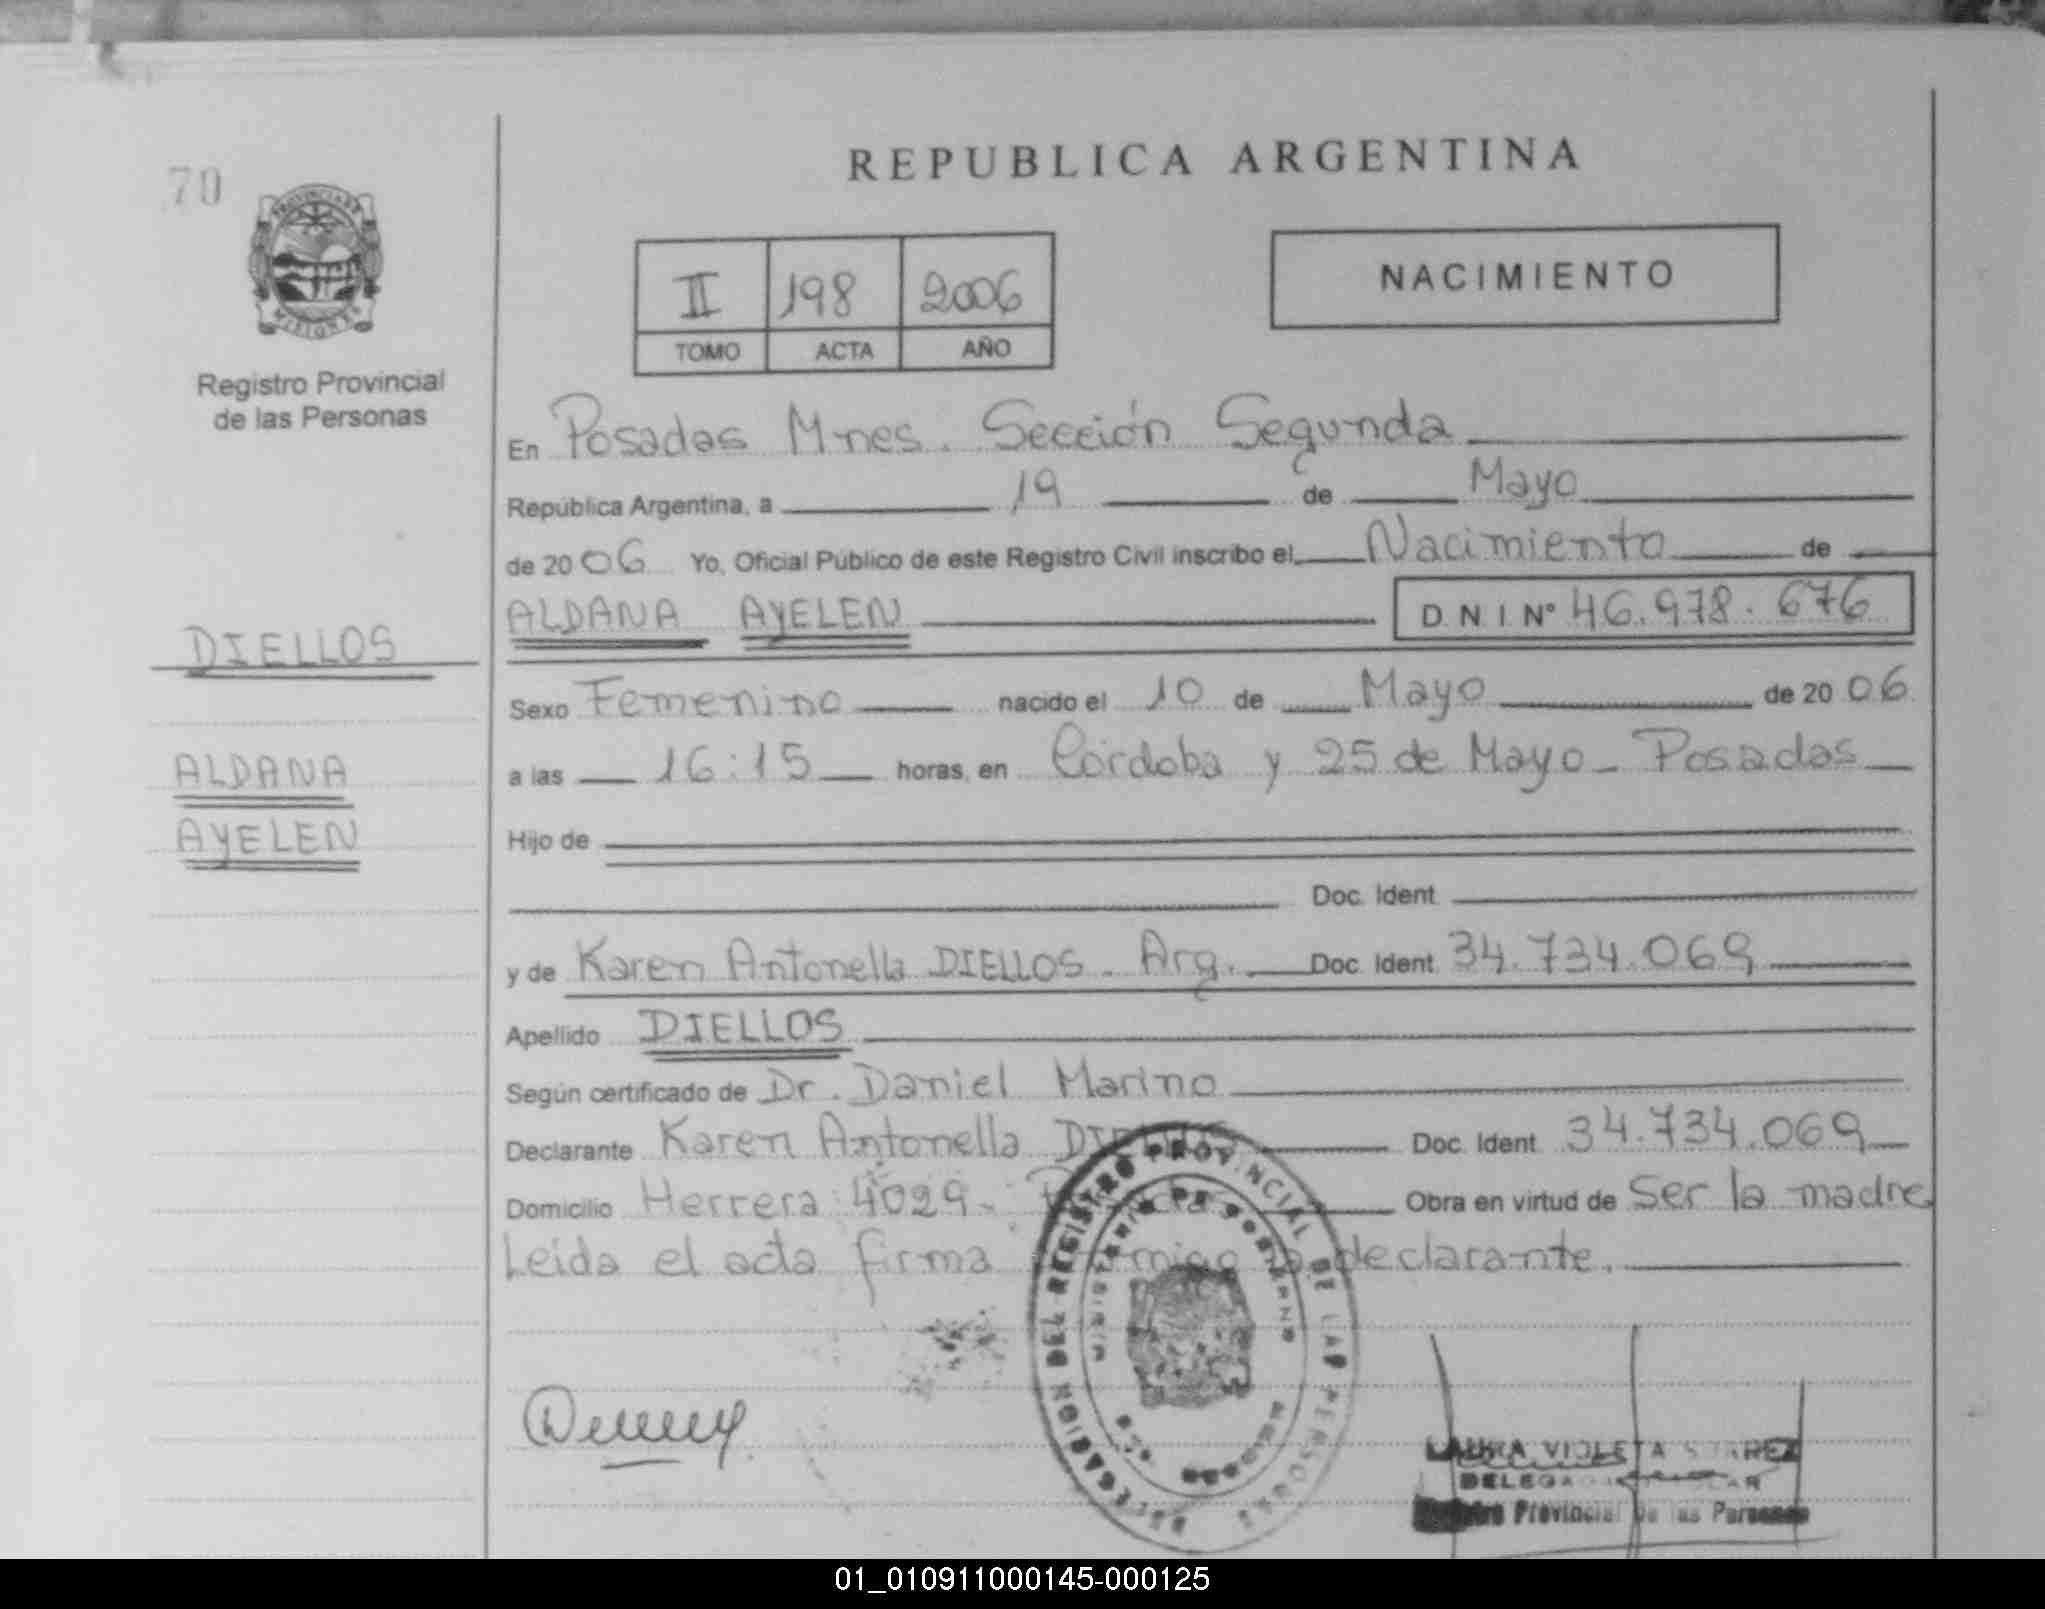 REPUBLICA ARGENTINA
70
PROVINCIA DE
MISIONES
Registro Provincial
de las Personas
II 198 2006
TOMO ACTA AÑO
NACIMIENTO
En Posadas Mnes. Sección Segunda
República Argentina, a 19 de Mayo
de 2006 Yo, Oficial Público de este Registro Civil inscribo el Nacimiento de
DIELLOS
ALDANA AYELEN D.N.I. Nº 46.978.676
Sexo Femenino nacido el 10 de Mayo de 2006
ALDANA
AYELEN
a las 16:15 horas, en Córdoba y 25 de Mayo - Posadas
Hijo de
Doc. Ident.
y de Karen Antonella DIELLOS. Arg. Doc. Ident. 34.734.069
Apellido DIELLOS
Según certificado de Dr. Daniel Marino
Declarante Karen Antonella DIELLOS Doc. Ident. 34.734.069
Domicilio Herrera 4029. Obra en virtud de Ser la madre
Leida el acta firma declarante.
DELEGACION DEL REGISTRO PROVINCIAL DE LAS PERSONAS
LAURA VIOLETA
Provincial de las Personas
01_010911000145-000125